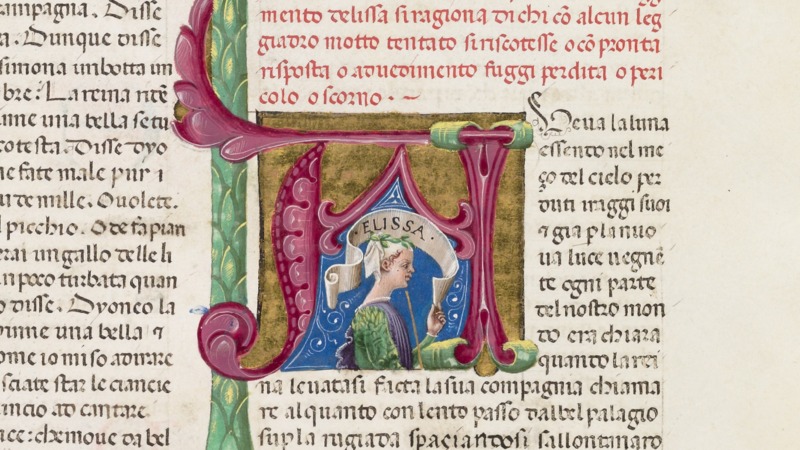 ampagna. Disse
a. Dunque disse
simona un botta un
bre: La reina ritē
una bella setu
cotesta. Disse dyo
e fate male pur i
de mille. O volete.
l picchio. O de fa pian
erai un gallo delle li
n poco turbata quan
o disse. Dyoneo la
inne una bella ⁊
ome io mi so adirare
sciate star le ciancie
incio ad cantare
ce: che move da bel
mento delissa si ragiona di chi cō alcun leg
giadro motto tentato si riscotesse o cō pronta
risposta o advedimento fuggi perdita o peri
colo o scorno.
ELISSA
Veva la luna
essento nel me
ço del cielo per
duti i raggi suoi
⁊ gia pla nuo
va luce vegnē
te ogni parte
del nostro mon
do era chiara
quando la rei
na levatasi facta la sua compagnia chiama
re alquanto con lento passo dal bel palagio
su p la rugiada spaciandosi sallontanaro